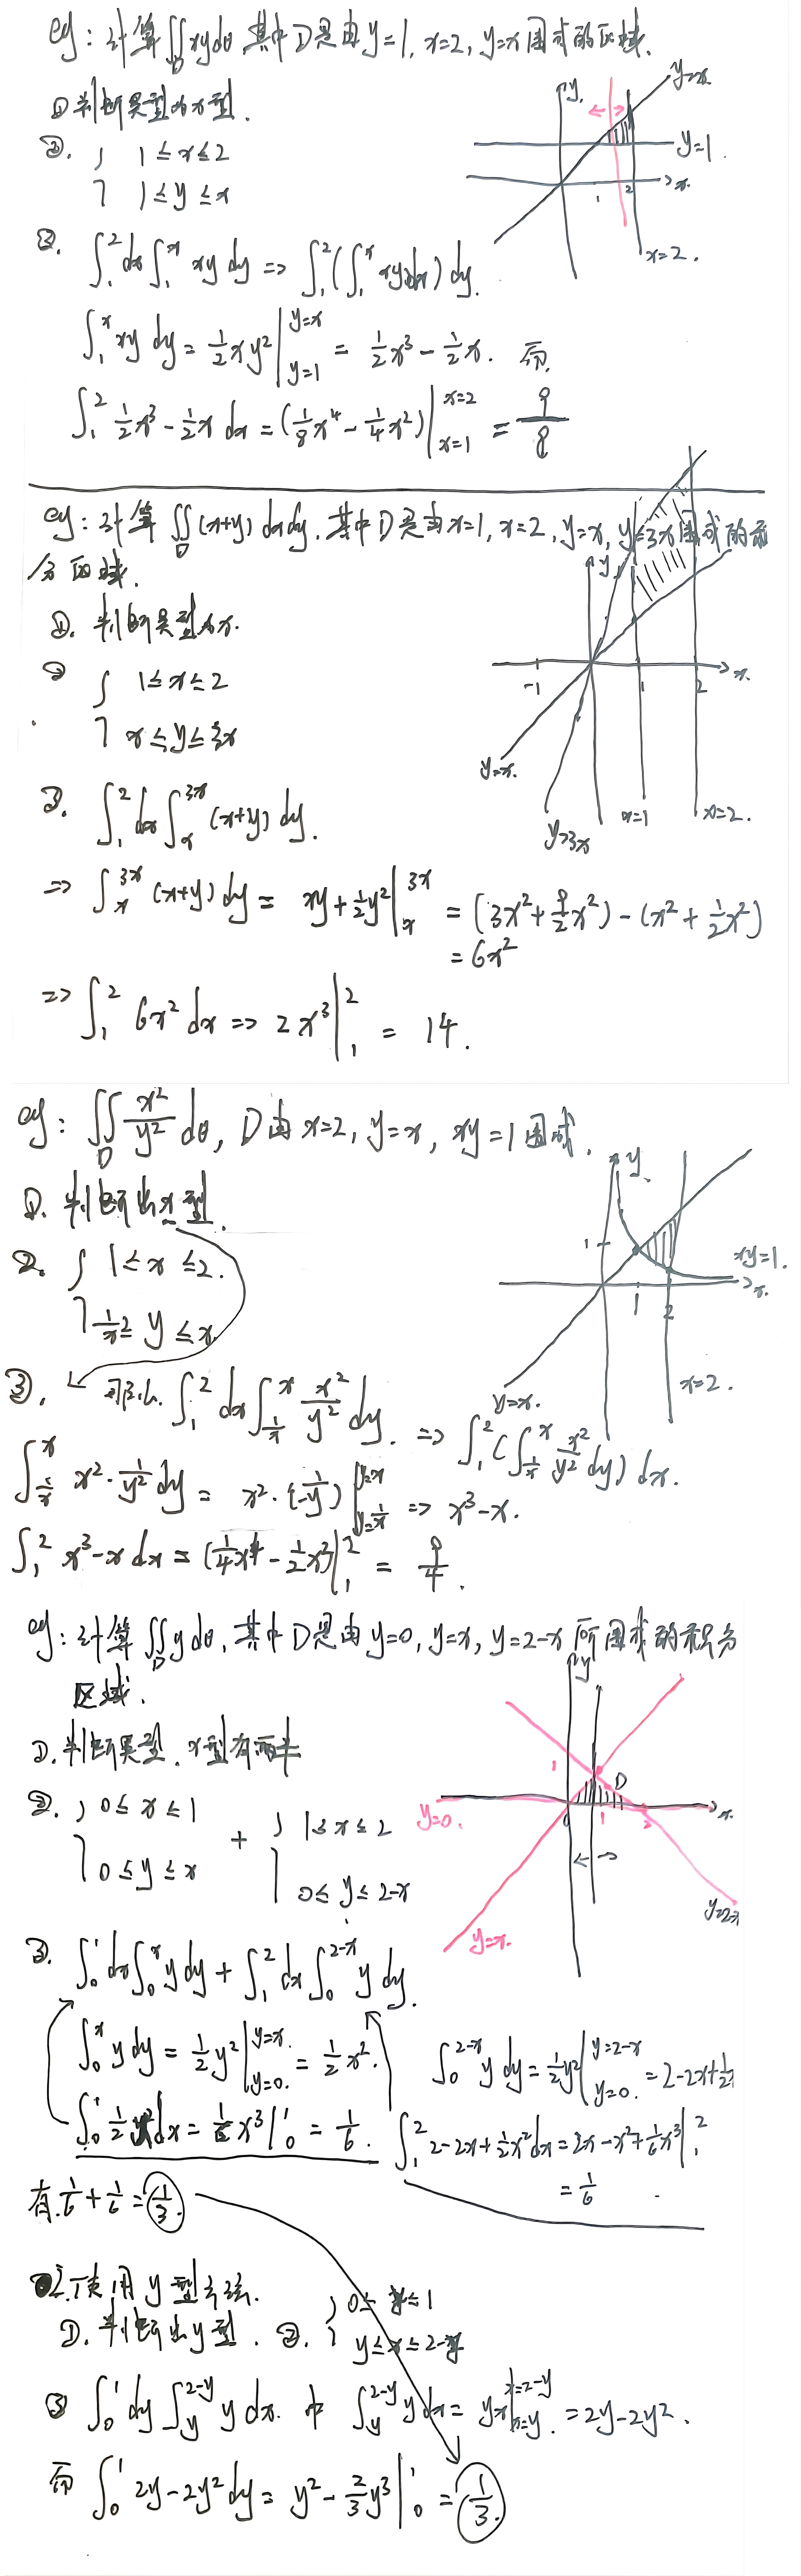 eg：计算∬_D xydσ，其中D是由y=1, x=2, y=x围成的区域.
①判断类型为x型.
②. { 1≤x≤2
1≤y≤x
y=x
y
y=1
x
1
2
x=2.
③. ∫_1^2 dx∫_1^x xy dy => ∫_1^2(∫_1^x xydx) dy.
∫_1^x xy dy = 1/2 xy² |_{y=1}^{y=x} = 1/2 x³ - 1/2 x. 而
∫_1^2 1/2 x³ - 1/2 x dx = (1/8 x⁴ - 1/4 x²) |_{x=1}^{x=2} = 9/8
eg：计算∬_D (x+y) dxdy. 其中D是由x=1, x=2, y=x, y=3x围成的积
分区域.
①. 判断类型为x.
② { 1≤x≤2
x≤y≤3x
y
x
-1
1
2
y=x.
y=3x
x=1
x=2.
③. ∫_1^2 dx∫_x^{3x} (x+y) dy.
=> ∫_x^{3x} (x+y) dy = xy + 1/2 y² |_x^{3x} = (3x² + 9/2 x²) - (x² + 1/2 x²)
= 6x²
=> ∫_1^2 6x² dx => 2x³ |_1^2 = 14.
eg：∬_D x²/y² dσ, D由x=2, y=x, xy=1围成.
①. 判断出x型.
②. { 1≤x≤2.
1/x ≤ y ≤x
y
1
xy=1.
x.
1
2
x=2.
y=x.
③. ∫_1^2 dx∫_{1/x}^x x²/y² dy. => ∫_1^2 (∫_{1/x}^x x²/y² dy) dx.
∫_{1/x}^x x²·1/y² dy = x²·(-1/y) |_{y=1/x}^{y=x} => x³-x.
∫_1^2 x³-x dx = (1/4 x⁴ - 1/2 x²) |_1^2 = 9/4.
eg：计算∬_D y dσ, 其中D是由y=0, y=x, y=2-x所围成的积分
区域.
①. 判断类型. x型有两半
②. { 0≤x≤1
0≤y≤x
+ { 1≤x≤2
0≤y≤2-x
y
1
D
y=0.
0
1
2
x.
y=2-x
y=x.
③. ∫_0^1 dx∫_0^x y dy + ∫_1^2 dx∫_0^{2-x} y dy.
∫_0^x y dy = 1/2 y² |_{y=0.}^{y=x.} = 1/2 x².
∫_0^1 1/2 x² dx = 1/6 x³ |_0^1 = 1/6.
∫_0^{2-x} y dy = 1/2 y² |_{y=0.}^{y=2-x} = 2-2x+1/2
∫_1^2 2-2x+1/2 x² dx = 2x-x²+1/6 x³ |_1^2
= 1/6
有. 1/6 + 1/6 = 1/3.
用y型
①. 判断出y型. ②. { 0≤y≤1
y≤x≤2-y
③ ∫_0^1 dy ∫_y^{2-y} y dx. 中 ∫_y^{2-y} y dx = yx |_{x=y.}^{x=2-y} = 2y-2y².
而 ∫_0^1 2y-2y² dy = y² - 2/3 y³ |_0^1 = 1/3.